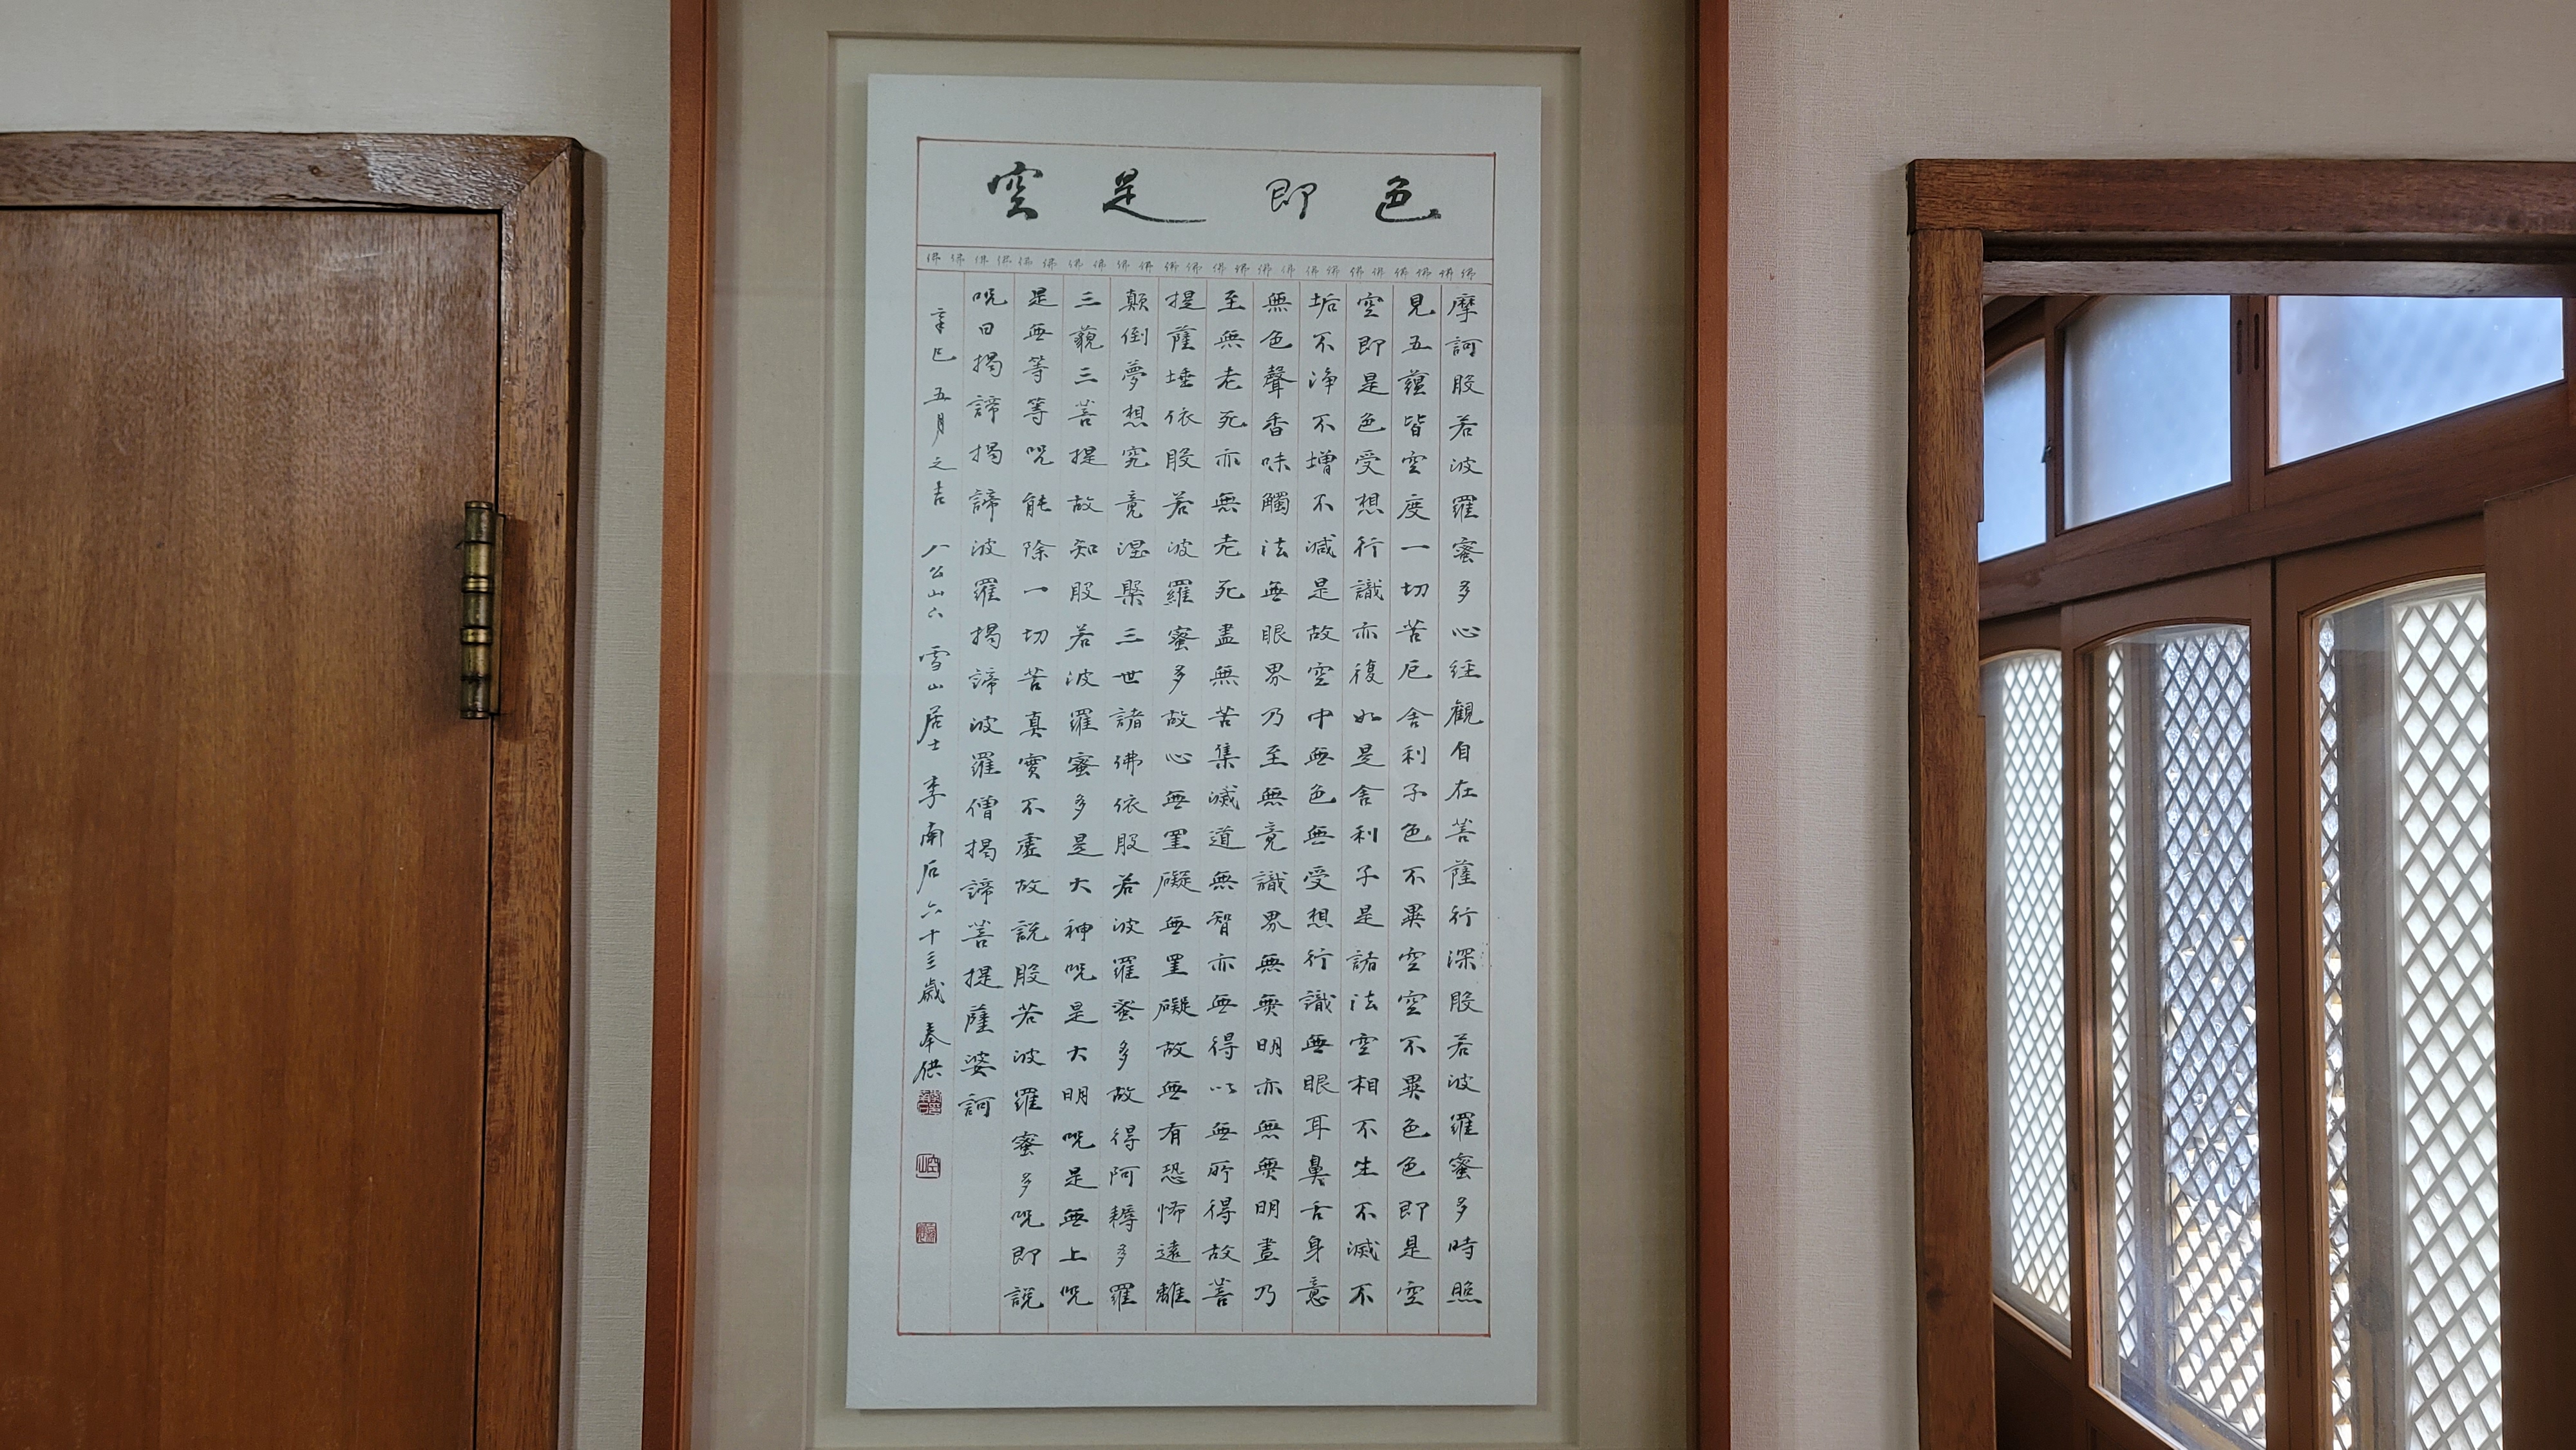 色即是空
佛佛佛佛佛佛佛佛佛佛佛佛佛佛佛佛佛佛佛佛佛佛佛佛
摩訶般若波羅蜜多心經觀自在菩薩行深般若波羅蜜多時照
見五蘊皆空度一切苦厄舍利子色不異空空不異色色即是空
空即是色受想行識亦復如是舍利子是諸法空相不生不滅不
垢不淨不增不減是故空中無色無受想行識無眼耳鼻舌身意
無色聲香味觸法無眼界乃至無意識界無無明亦無無明盡乃
至無老死亦無老死盡無苦集滅道無智亦無得以無所得故菩
提薩埵依般若波羅蜜多故心無罣礙無罣礙故無有恐怖遠離
顛倒夢想究竟涅槃三世諸佛依般若波羅蜜多故得阿耨多羅
三藐三菩提故知般若波羅蜜多是大神呪是大明呪是無上呪
是無等等呪能除一切苦真實不虛故說般若波羅蜜多呪即說
呪曰揭諦揭諦波羅揭諦波羅僧揭諦菩提薩婆訶
辛巳 五月之吉 八公山下 雪山居士 李南石 六十三歲 奉供